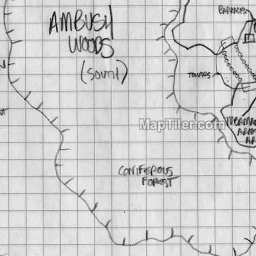 AMBUSH
WOODS
(SOUTH)
BARRACKS
TOWERS
MapTiler.com
CONIFEROUS
FOREST